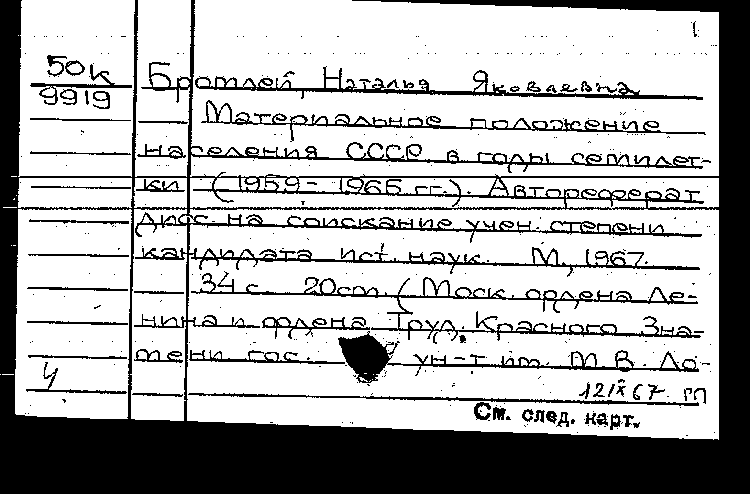 1
50к
9919
Бромлей, Наталья Яковлевна
Материальное положение
населения СССР в годы семилет-
ки (1959 - 1965 гг.). Автореферат
дисс. на соискание учен. степени
кандидата ист. наук. М., 1967.
34 с. 20см. (Моск. ордена Ле-
нина и ордена Труд. Красного Зна-
мени гос. ун-т им. М.В. Ло-
4
12/X 67. РП
См. след. карт.